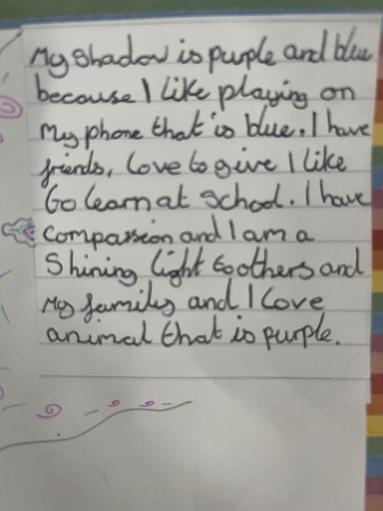 My shadow is purple and blue
because I like playing on
my phone that is blue. I have
friends, love to give I like
to learn at school. I have
compassion and I am a
shining light to others and
my family and I love
animal that is purple.